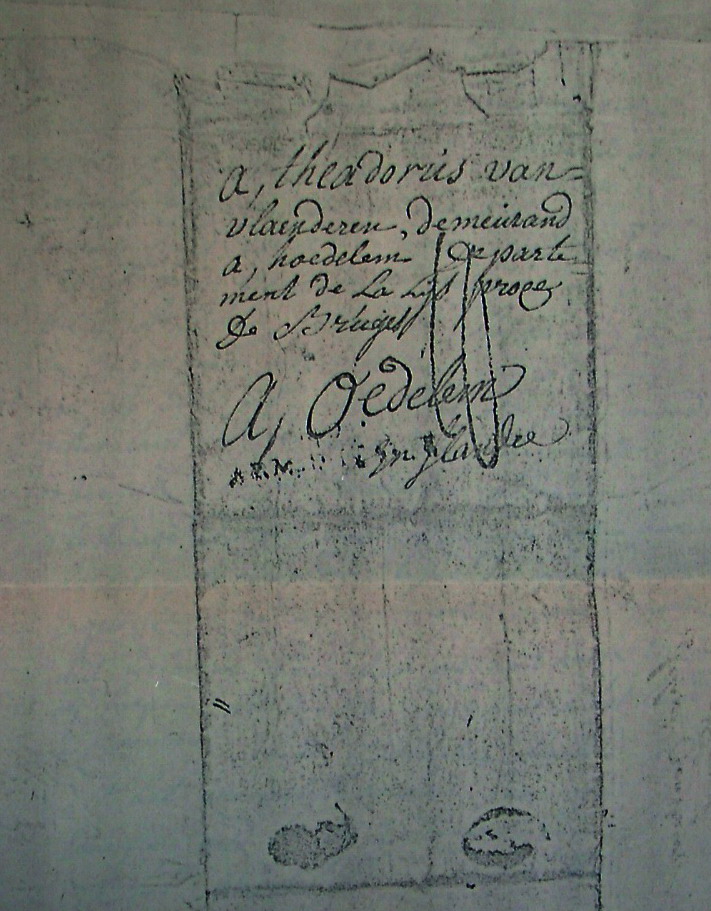 a, theadorus van=
vlaenderen, demeurand
a, hoedelem departe
ment de La Lis proce
de Bruges
A, Oedelem
ARM. en flandre